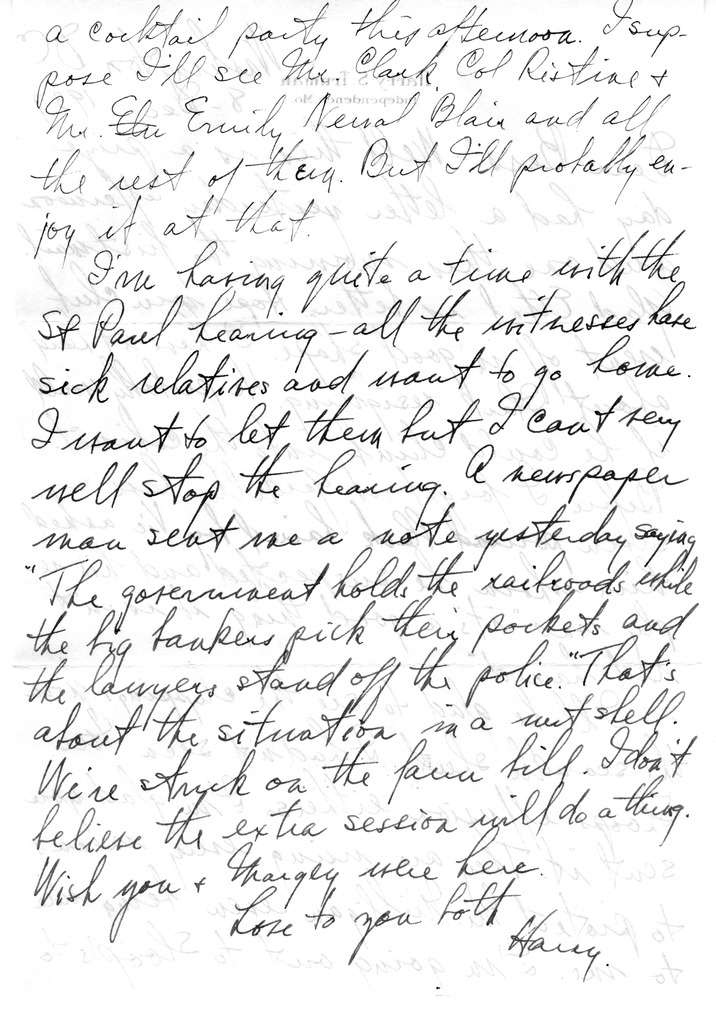 a cocktail party this afternoon. I sup-
pose I'll see Mr. Clark, Col Ristine &
Mr. Emily Newal Blair and all
the rest of them. But I'll probably en-
joy it at that.
I'm having quite a time with the
St Paul hearing - all the witnesses have
sick relatives and want to go home.
I want to let them but I can't very
well stop the hearing. A newspaper
man sent me a note yesterday saying
"The government holds the railroads while
the big bankers pick their pockets and
the lawyers stand off the police." That's
about the situation in a nut shell.
We're stuck on the farm bill. I don't
believe the extra session will do a thing.
Wish you & Margey were here.
Love to you both
Harry.